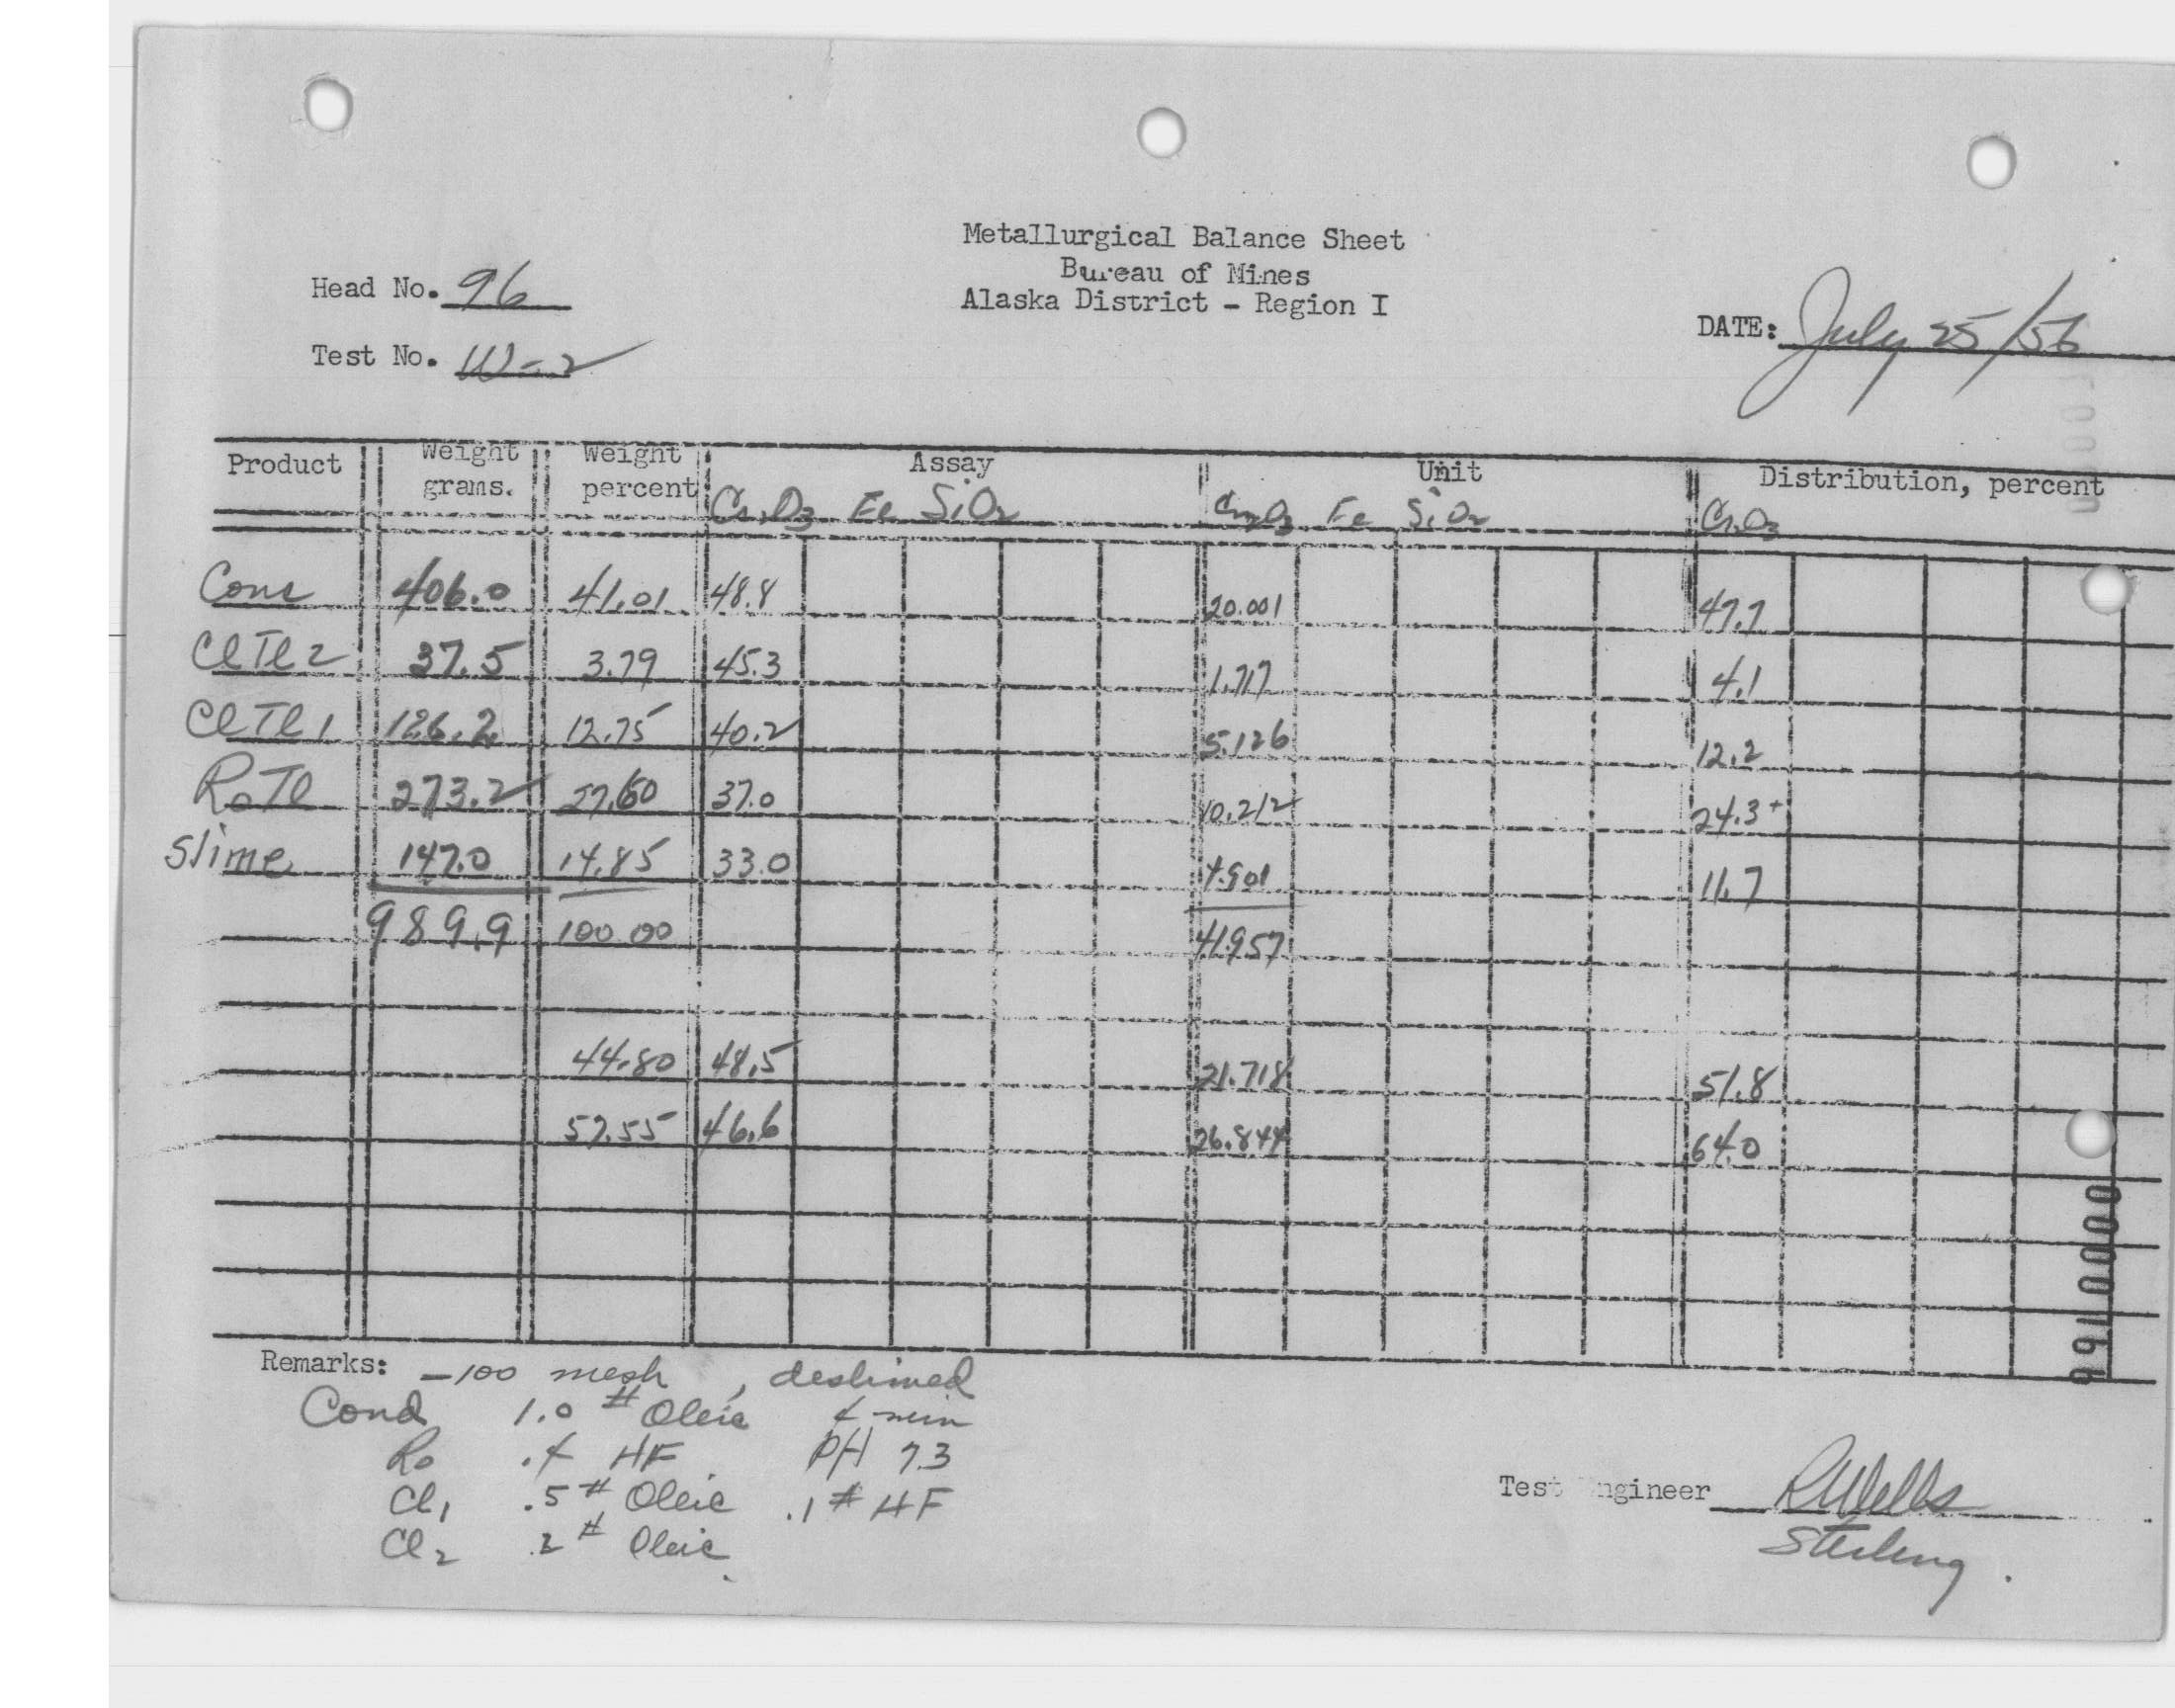 Metallurgical Balance Sheet
Bureau of Mines
Alaska District - Region I
Head No. 96
Test No. W-2
DATE: July 25/56
Product Weight grams. Weight percent Assay Unit Distribution, percent
Cr2O3 Fe SiO2 Cr2O3 Fe SiO2 Cr2O3
Conc 406.0 41.01 48.8 20.001 47.7
ClTl2 37.5 3.79 45.3 1.717 4.1
ClTl1 126.2 12.75 40.2 5.126 12.2
RoTl 273.2 27.60 37.0 10.212 24.3+
Slime 147.0 14.85 33.0 4.901 11.7
989.9 100.00 41.957
44.80 48.5 21.718 51.8
57.55 46.6 26.844 64.0
Remarks: -100 mesh, deslimed
Cond 1.0 # Oleic 4 min
Ro .4 HF PH 7.3
Cl1 .5 # Oleic .1 # HF
Cl2 .2 # Oleic
Test ngineer RWells
Sterling.
99100000